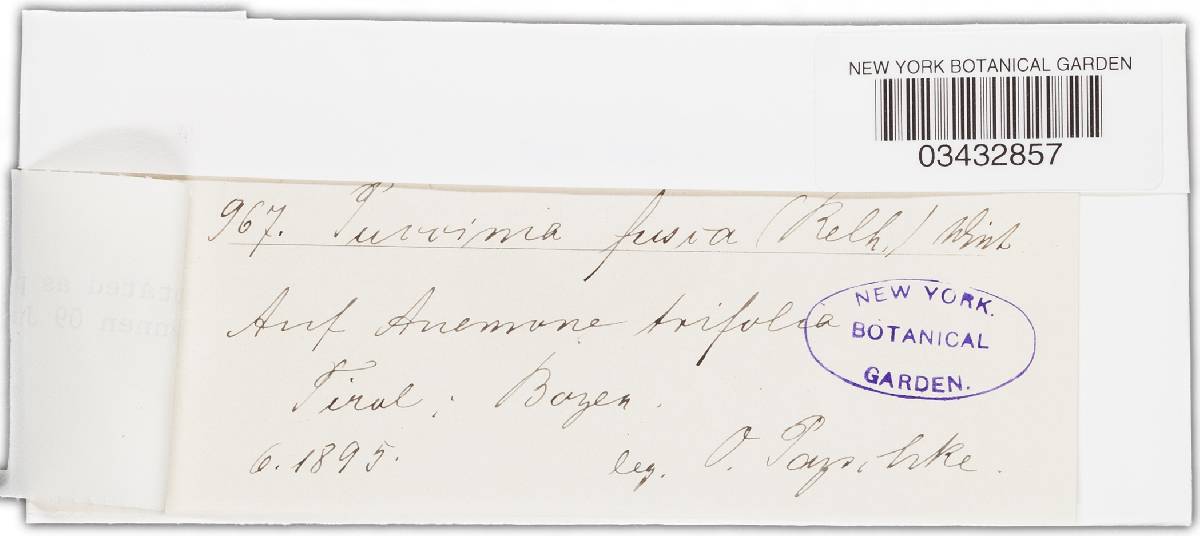 NEW YORK BOTANICAL GARDEN
03432857
967. Puccinia fusca (Relh.) Wint
Auf Anemone trifolia
Tirol; Bozen.
6.1895. leg. O. Pazschke.
NEW YORK.
BOTANICAL
GARDEN.